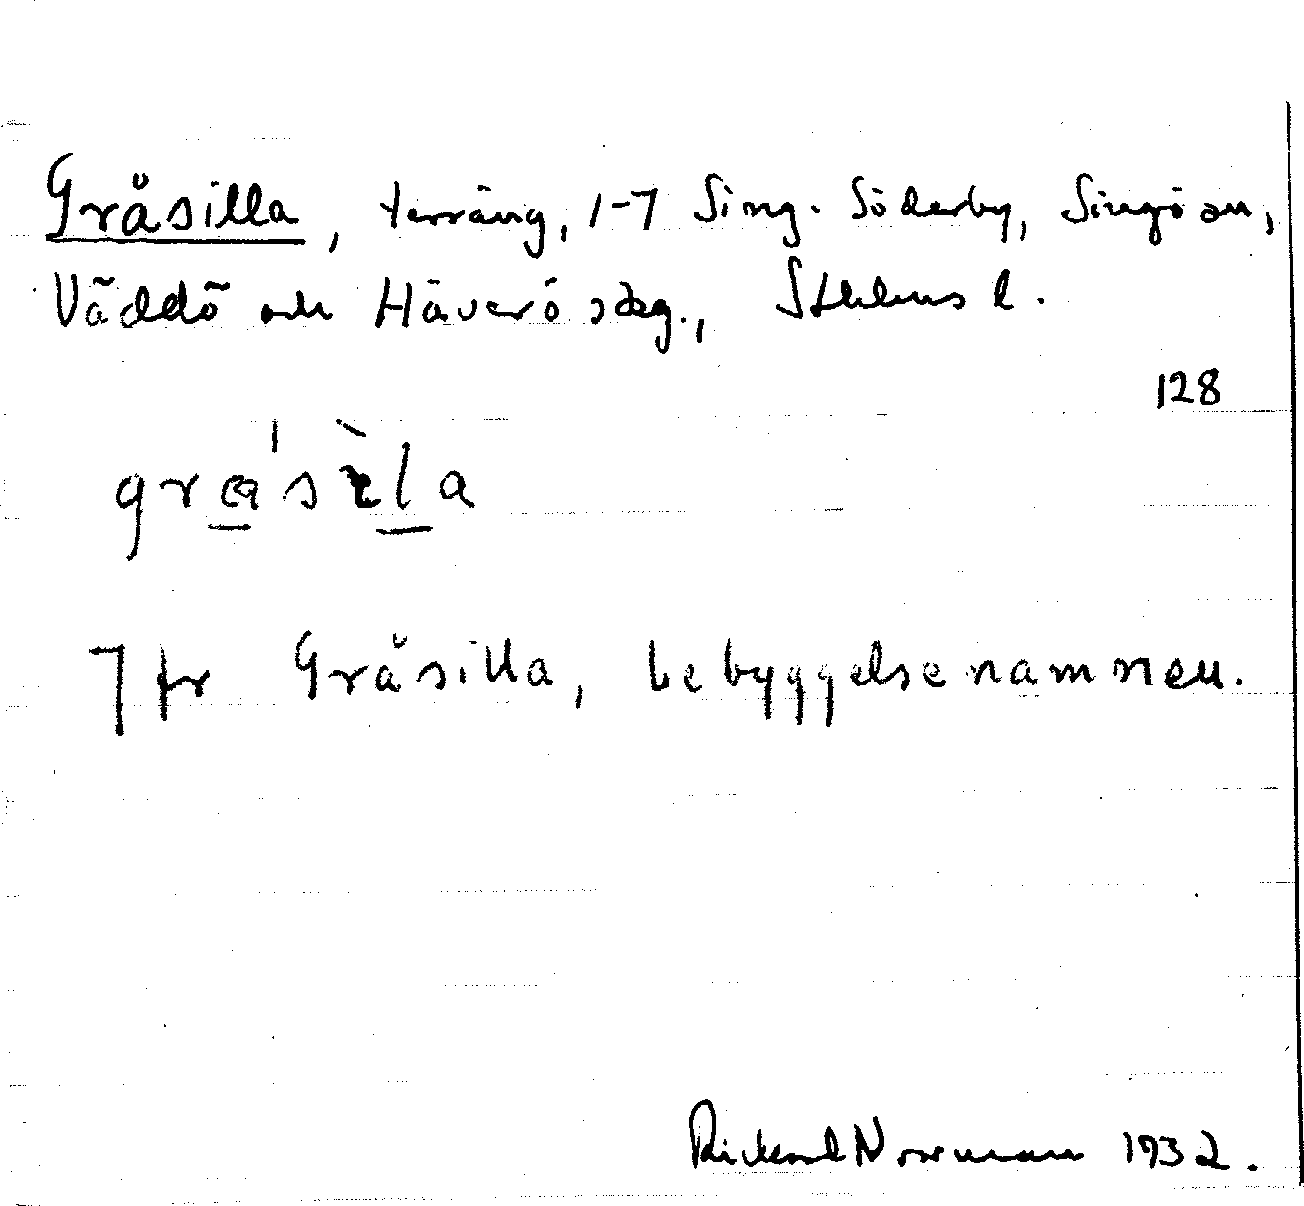 Gråsilla, terräng, 1-7 Sing. Söderby, Singö sn,
Väddö och Häverö sdeg., Sthlms l.
128
gra̱'sìḻa
Jfr Gråsilla, bebyggelsenamnen.
Rickard Norrman 1932.